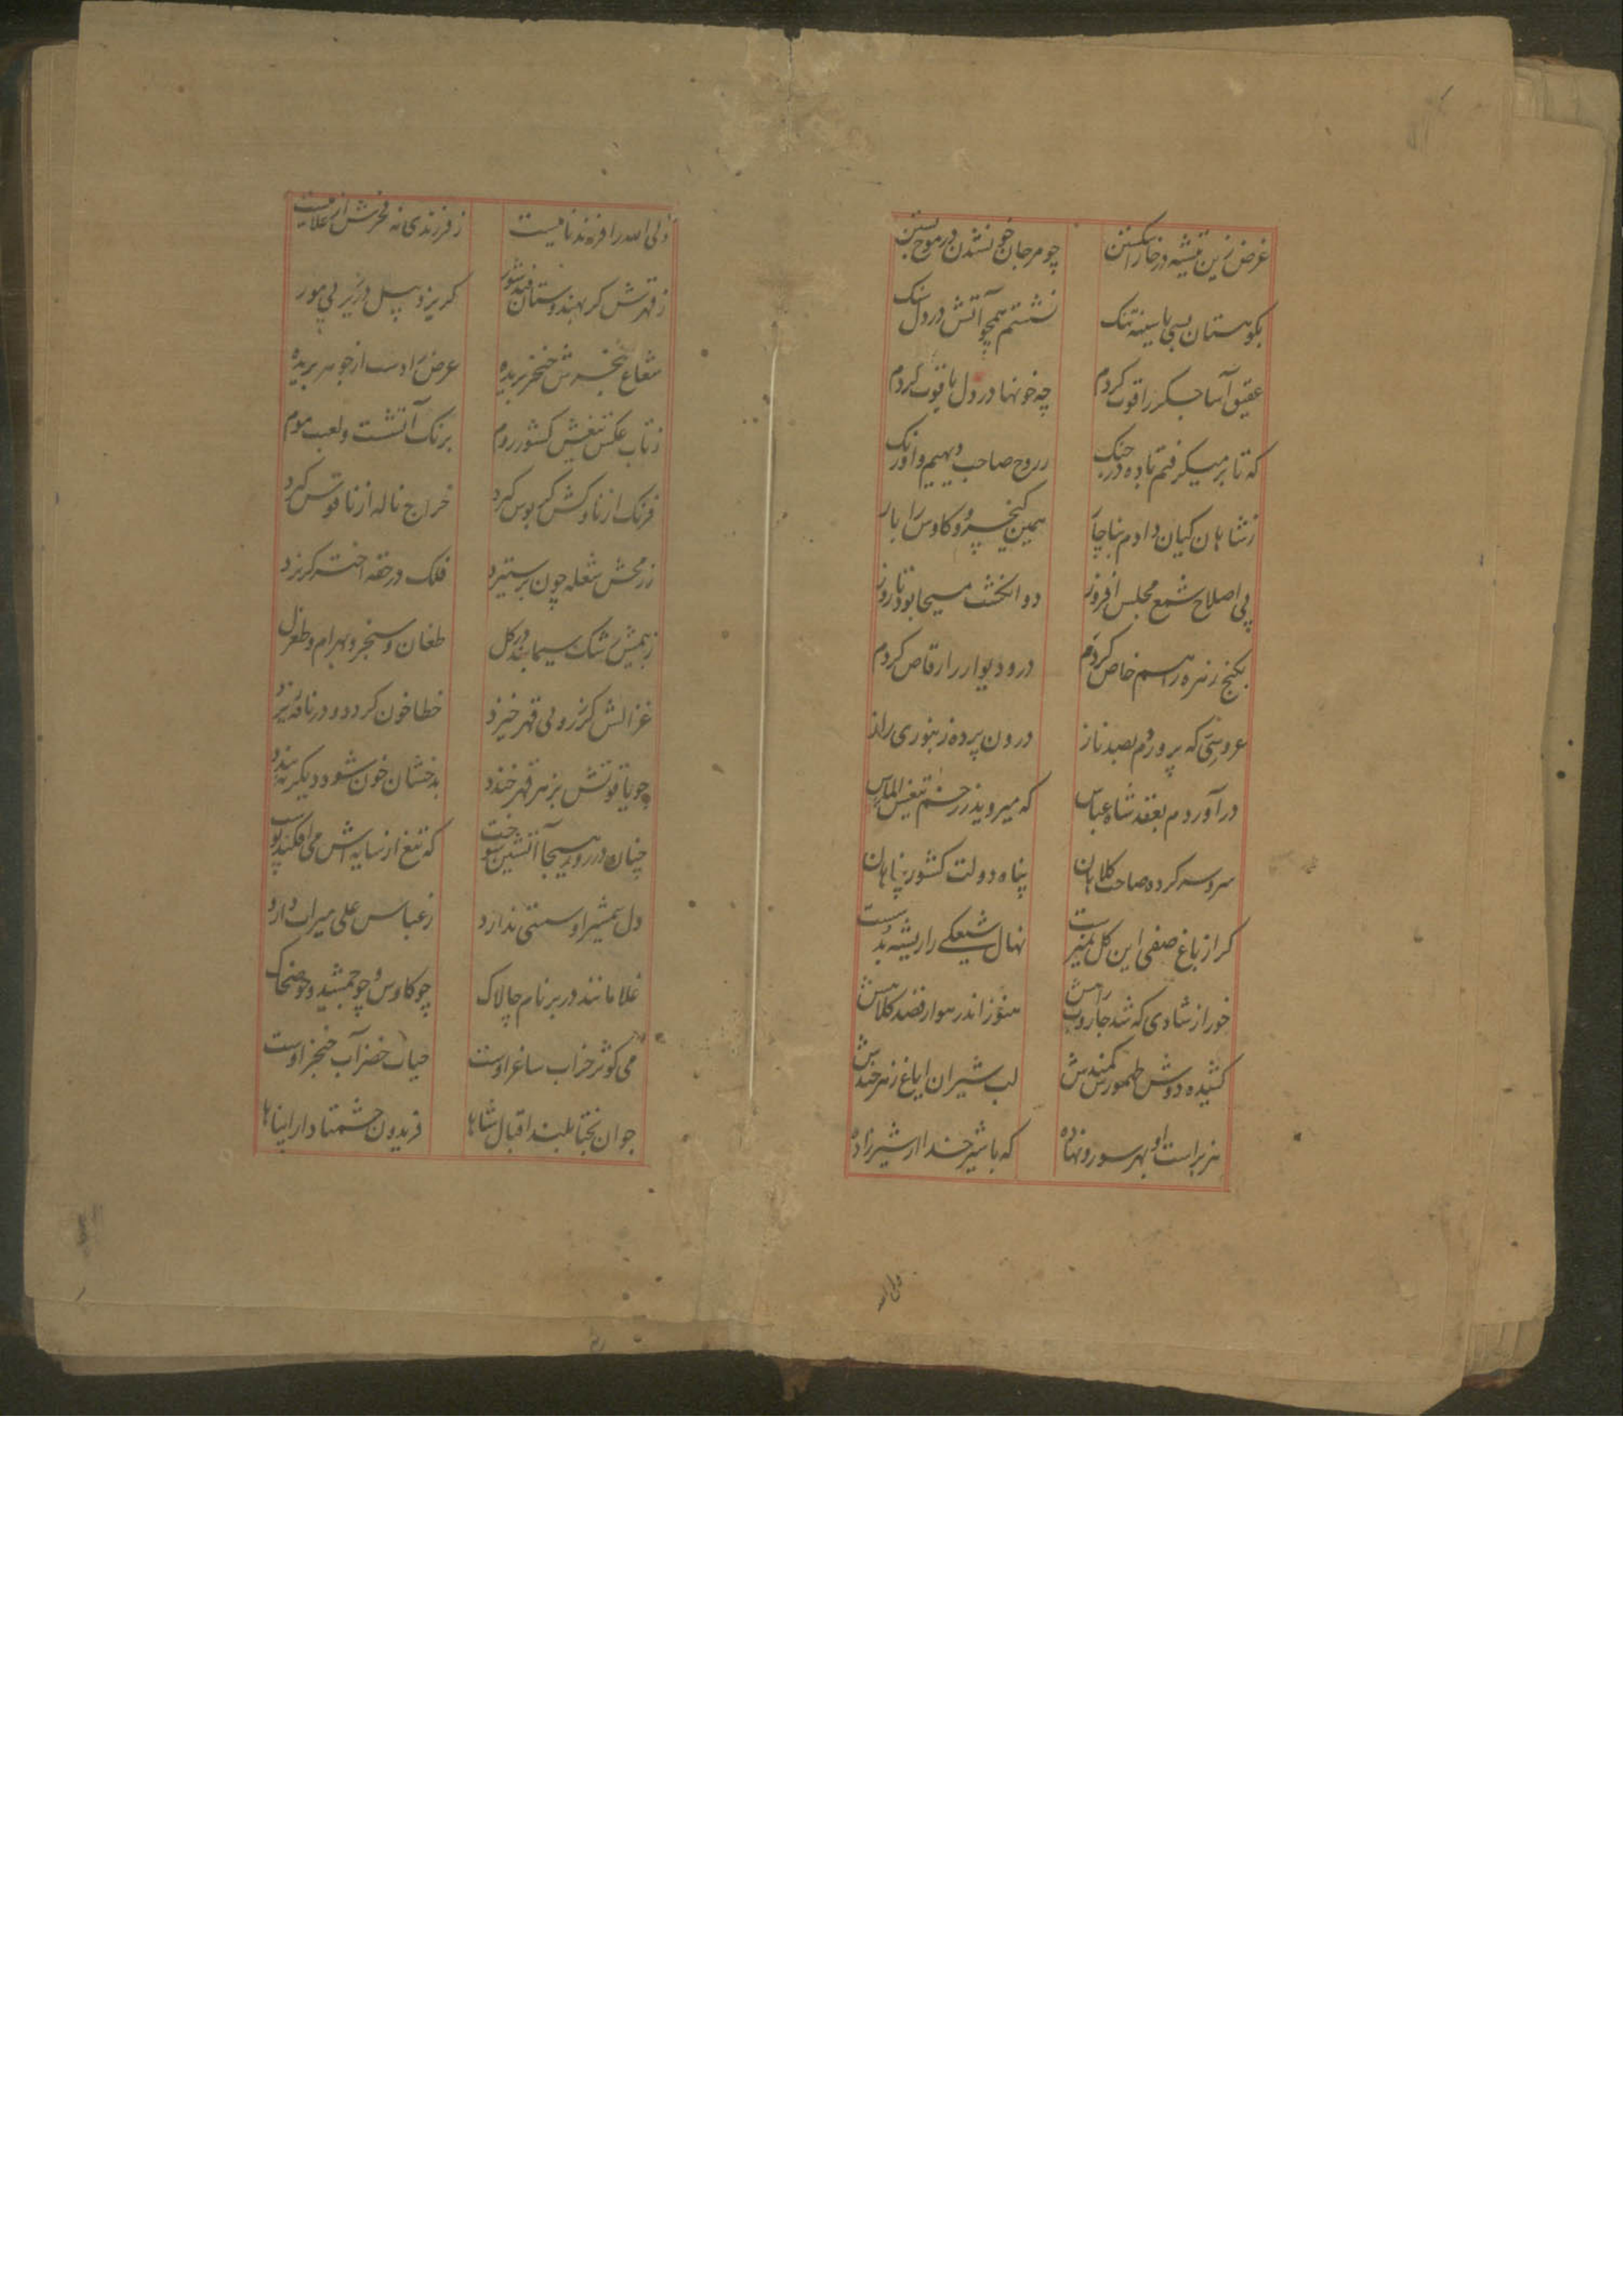 غرض زین تیشه در خارا شکستن چو مرجان خون شدن در موج بستن
بکوهستان بسی با سینه تنک نشستم همچو آتش در دل سنک
عقیق آسا جکر را قوت کردم چه خونها در دل یاقوت کردم
که تا بر میکرفتم باده در چنک ز روح صاحب دیهیم و اورنک
ز شاهان کیان دادم بناچار همین کیخسرو و کاوس را بار
پی اصلاح شمع مجلس افروز دو انکشت مسیحا بود تا روز
بکنج زهره را هم خاص کردم در و دیوار را رقاص کردم
عروسی که پروردم بصد ناز درون پرده زنبوری راز
در آوردم بعقد شاه عباس که میروید ز زخم تیغش الماس
سر و سرکرده صاحب کلاهان پناه دولت کشور پناهان
کز از باغ صفی این کل بخیرست نهال شیعکی را ریشه بدست
خور از شادی که شد جاروب راهش هنوز اندر هوا رقصد کلاهش
کشیده دوش طهمورس کمندش لب شیران ایاغ زهرخندش
هزبر است او بهر سو رو نهاده که با شیر خدا از شیرزاده
ولی
ولی الله را فرزند نامیست ز فرزندی نه فخرش از غلامیست
ز قهرش کر بهندوستان فتد شور کریزد پیل در زیر پی مور
شعاع خنجرش خنجر بریده عرض را دست از جوهر بریده
ز تاب عکس تیغش کشور روم برنک آتشست و لعبت موم
فرنک از ناوکش کر بوس کیرد خراج ناله از ناقوس کیرد
ز رمحش شعله چون بر ستیزد فلک در حقه اختر کریزد
ز بیمش خشک سیمابند در کل طغان و سنجر و بهرام و طغرل
غزالش کز ز روی قهر خیزد خطا خون کردد و در نافه ریزد
چو یاقوتش بزهر قهر خندد بدخشان خون شود دیکر نبندد
چنان در روز هیجا آتشین خوست که تیغ از سایه اش می افکند پوست
دل شمشیر او سستی ندارد ز عباس علی میراث دارد
غلامانند در بزم نام چالاک چو کاوس و چو جمشید و چو ضحاک
می کوثر خراب ساغر اوست حیات خضر آب خنجر اوست
جوان بختا بلند اقبال شاها فریدون حشمتا دارا پناها